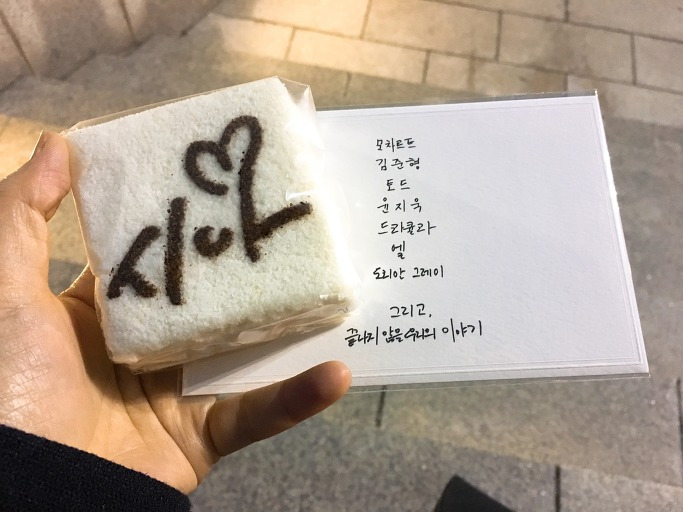 시아♡
모차르트
김준형
토드
윤지욱
드라큘라
엘
도리안 그레이
그리고,
끝나지 않을 우리의 이야기